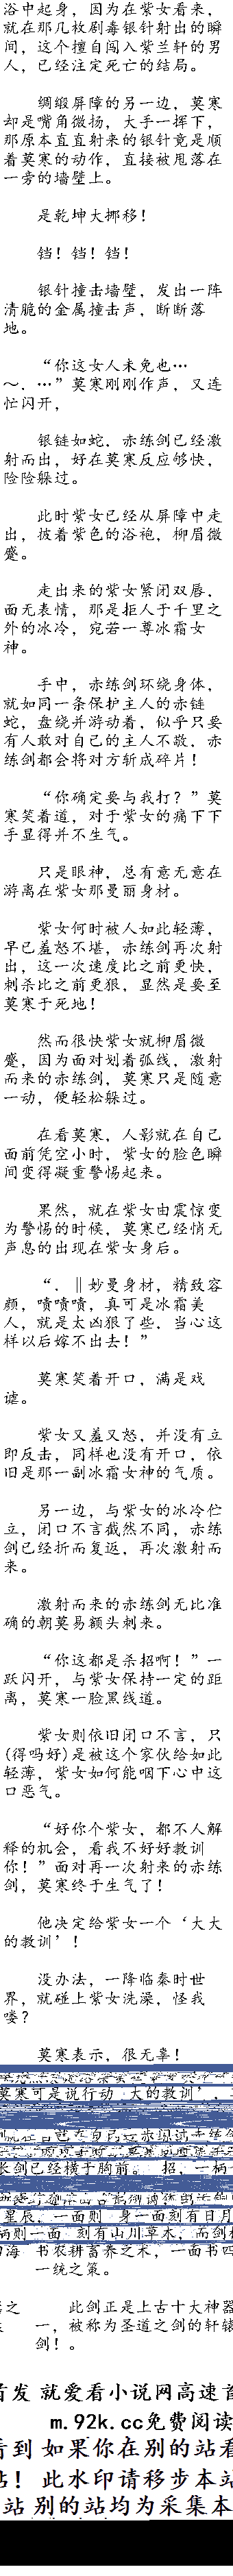 浴中起身，因为在紫女看来，
就在那几枚剧毒银针射出的瞬
间，这个擅自闯入紫兰轩的男
人，已经注定死亡的结局。
绸缎屏障的另一边，莫寒
却是嘴角微扬，大手一挥下，
那原本直直射来的银针竟是顺
着莫寒的动作，直接被甩落在
一旁的墙壁上。
是乾坤大挪移！
铛！铛！铛！
银针撞击墙壁，发出一阵
清脆的金属撞击声，断断落
地。
“你这女人未免也…
～．…”莫寒刚刚作声，又连
忙闪开，
银链如蛇，赤练剑已经激
射而出，好在莫寒反应够快，
险险躲过。
此时紫女已经从屏障中走
出，披着紫色的浴袍，柳眉微
蹙。
走出来的紫女紧闭双唇，
面无表情，那是拒人于千里之
外的冰冷，宛若一尊冰霜女
神。
手中，赤练剑环绕身体，
就如同一条保护主人的赤链
蛇，盘绕并游动着，似乎只要
有人敢对自己的主人不敬，赤
练剑都会将对方斩成碎片！
“你确定要与我打？”莫
寒笑着道，对于紫女的痛下下
手显得并不生气。
只是眼神，总有意无意在
游离在紫女那曼丽身材。
紫女何时被人如此轻薄，
早已羞怒不堪，赤练剑再次射
出，这一次速度比之前更快，
刺杀比之前更狠，显然是要至
莫寒于死地！
然而很快紫女就柳眉微
蹙，因为面对划着弧线，激射
而来的赤练剑，莫寒只是随意
一动，便轻松躲过。
在看莫寒，人影就在自己
面前凭空小时，紫女的脸色瞬
间变得凝重警惕起来。
果然，就在紫女由震惊变
为警惕的时候，莫寒已经悄无
声息的出现在紫女身后。
“．‖妙曼身材，精致容
颜，啧啧啧，真可是冰霜美
人，就是太凶狠了些，当心这
样以后嫁不出去！”
莫寒笑着开口，满是戏
谑。
紫女又羞又怒，并没有立
即反击，同样也没有开口，依
旧是那一副冰霜女神的气质。
另一边，与紫女的冰冷伫
立，闭口不言截然不同，赤练
剑已经折而复返，再次激射而
来。
激射而来的赤练剑无比准
确的朝莫易额头刺来。
“你这都是杀招啊！”一
跃闪开，与紫女保持一定的距
离，莫寒一脸黑线道。
紫女则依旧闭口不言，只
(得吗好)是被这个家伙给如此
轻薄，紫女如何能咽下心中这
口恶气。
“好你个紫女，都不人解
释的机会，看我不好好教训
你！”面对再一次射来的赤练
剑，莫寒终于生气了！
他决定给紫女一个‘大大
的教训’！
没办法，一降临秦时世
界，就碰上紫女洗澡，怪我
喽？
莫寒表示，很无辜！
莫寒可是说行动 大的教训’，
长剑已经横于胸前。 招，一柄
星辰，一面则 身一面刻有日月
柄则一面 刻有山川草木，而剑
海 书农耕畜养之术，一面书四
一统之策。
之 此剑正是上古十大神器
一，被称为圣道之剑的轩辕
剑！。
首发 就爱看小说网高速首
m.92k.cc免费阅读
看到 如果你在别的站看
站！ 此水印请移步本站
站 别的站均为采集本